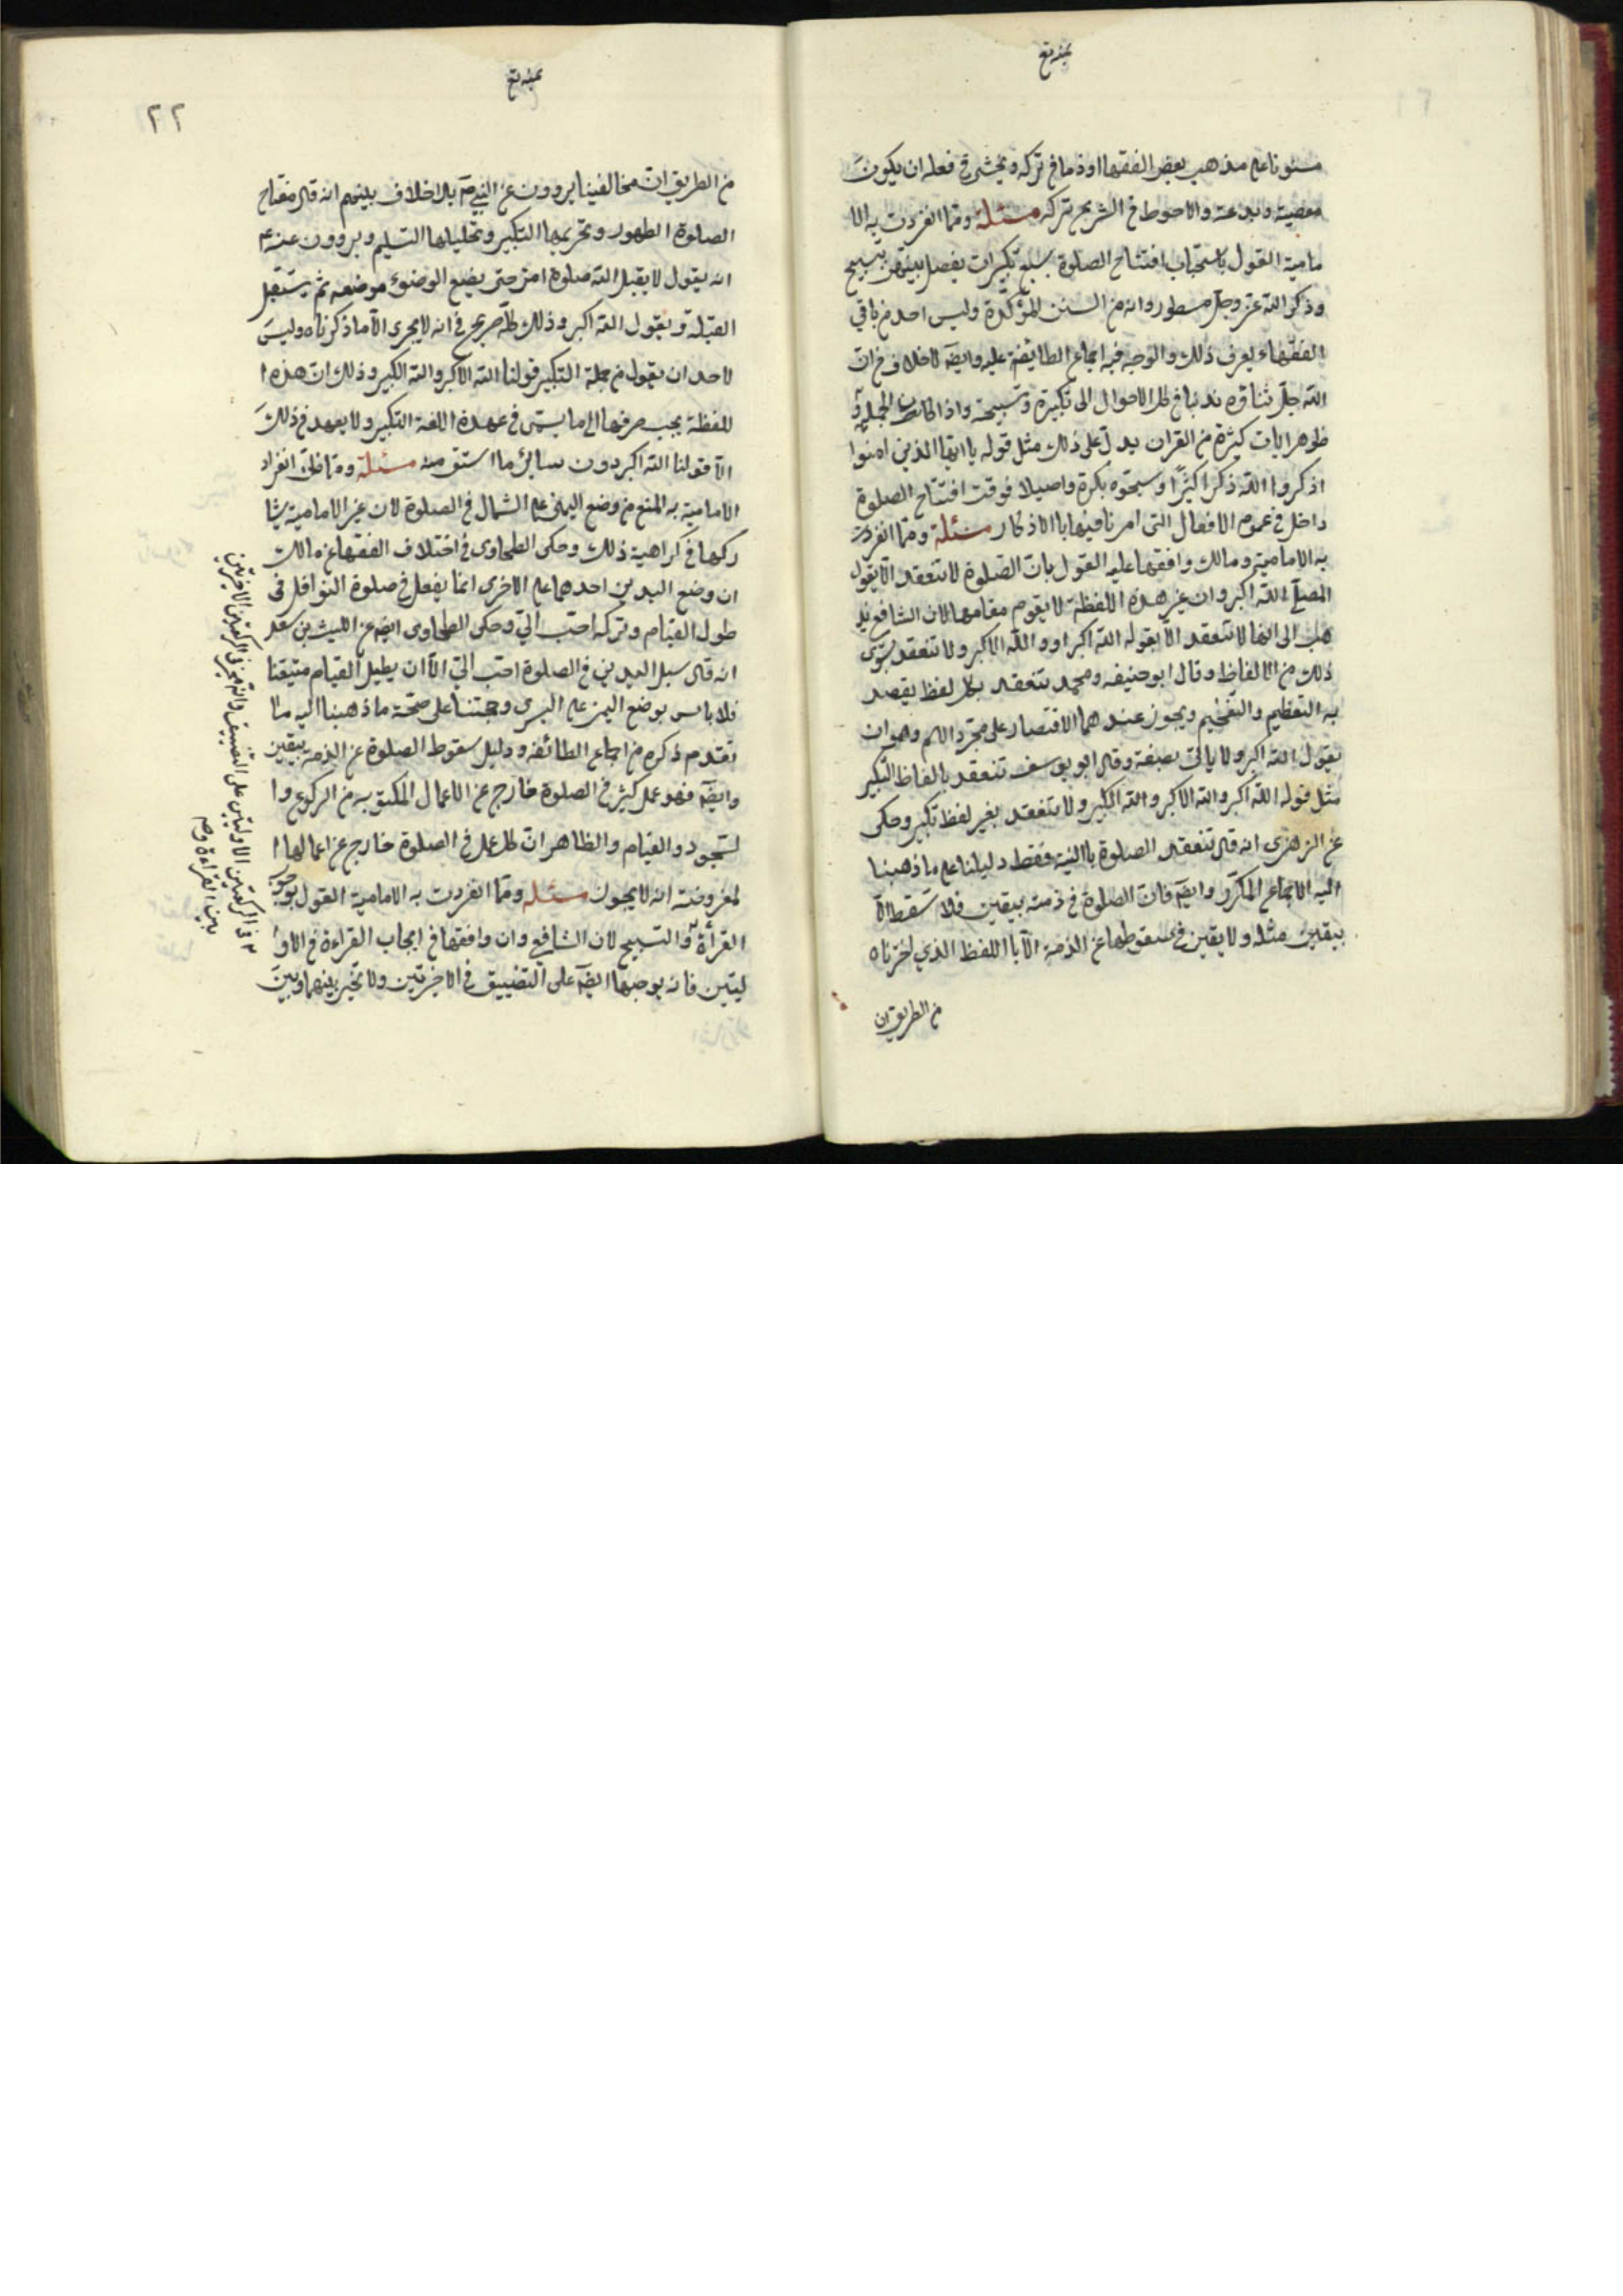 مسنونا علی مذهب بعض الفقها او ذما فی ترکه ویخشی فی فعله ان یکون
معصیة وبدعة والاحوط فی الشرع ترکه مسئلة ومما انفردت به الا
مامیة القول باستحباب افتتاح الصلوة بسبع تکبیرات یفصل بینهن بتسبیح
وذکر الله عز وجل مسطور وانه من السنن المؤکدة ولیس احد من باقی
الفقهاء یعرف ذلک والوجه فیه اجماع الطایفة علیه وایضا لا خلاف فی ان
الله جل ثناؤه ندبنا فی کل الاحوال الی تکبیرة وتسبیحة واذا کان الجملة
ظوهر ایات کثیرة من القران یدل علی ذلک مثل قوله یا ایها الذین امنوا
اذکروا الله ذکرا کثیرا وسبحوه بکرة واصیلا فوقت افتتاح الصلوة
داخل فی عموم الافعال التی امرنا فیها باالاذکار مسئلة ومما انفردت
به الامامیة ومالک وافقها علیه القول بان الصلوة لا تنعقد الا یقول
المصلی الله اکبر وان غیر هذه اللفظة لا یقوم مقامها لان الشافعی یذ
هب الی انها لا تنعقد الا بقوله الله اکبر او والله الاکبر ولا تنعقد بسوی
ذلک من الالفاظ وقال ابو حنیفه ومحمد تنعقد بکل لفظ یقصد
به التعظیم والتفخیم ویجوز عندهما الاقتصار علی مجرد الاسم وهو ان
یقول الله اکبر ولا یاتی بصیغة وقال ابو یوسف تنعقد بالفاظ التکبیر
مثل قوله الله اکبر والله الاکبر والله الکبیر ولا تنعقد بغیر لفظ تکبیر وحکی
عن الزهری انه قال تنعقد الصلوة باالنیة فقط دلیلنا علی ما ذهبنا
الیه الاجماع المکرر وایضا فان الصلوة فی ذمته بیقین فلا تسقط الا
بیقین مثله ولا یقین فی سقوطها عن الذمة الا باللفظ الذی اخترناه
من الطریق ان
۲۲
من الطریق ان مخالفینا یروون عن النبی ص بلا خلاف بینهم انه قال مفتاح
الصلوة الطهور وتحریمها التکبیر وتحلیلها التسلیم ویروون عنه ع
انه یقول لا یقبل الله صلوة امرء حتی یضع الوضوء موضعه ثم یستقبل
القبلة ویقول الله اکبر وذلک کله صریح فی انه لا یجزی الا ما ذکرناه ولیس
لاحد ان یقول من جملة التکبیر قولنا الله الاکبر والله الکبیر وذلک ان هذه ا
للفظة یجب صرفها الی ما یسمی فی عهدة اللغة التکبیر ولا یعهد فی ذلک
الا قولنا الله اکبر دون سائر ما اشتق منه مسئلة ومما ظن انفراد
الامامیة به المنع من وضع الیمنی علی الشمال فی الصلوة لان غیر الامامیة یشا
رکها فی کراهیة ذلک وحکی الطحاوی فی اختلاف الفقها عن مالک
ان وضع الیدین احدهما علی الاخری انما یفعل فی صلوة النوافل فی
طول القیام وترکه احب الی وحکی الطحاوی ایضا عن اللیث بن سعد
انه قال سبل الیدین فی الصلوة احب الی الا ان یطیل القیام
فلا باس بوضع الیمنی علی الیسری وحجتنا علی صحة ما ذهبنا الیه ما
تقدم ذکره من اجماع الطائفه ودلیل سقوط الصلوة عن الذمه بیقین
وایضا فهو عمل کثیر فی الصلوة خارج عن الاعمال المکتوبه من الرکوع وا
لسجود والقیام والظاهر ان کل عمل فی الصلوة خارج عن اعمالها ا
لمفروضة انه لا یجوز مسئله ومما انفردت به الامامیة القول بوجوب
القرأة والتسبیح لان الشافعی وان وافقها فی ایجاب القراءة فی الاو
لیتین فانه یوجبها ایضا علی التضییق فی الاخیرتین ولا تخیر بینهما وبین
فی الرکعتین الاولیتین علی التضییق وانه مخیر فی الرکعتین الاخرتین
بین القراءة